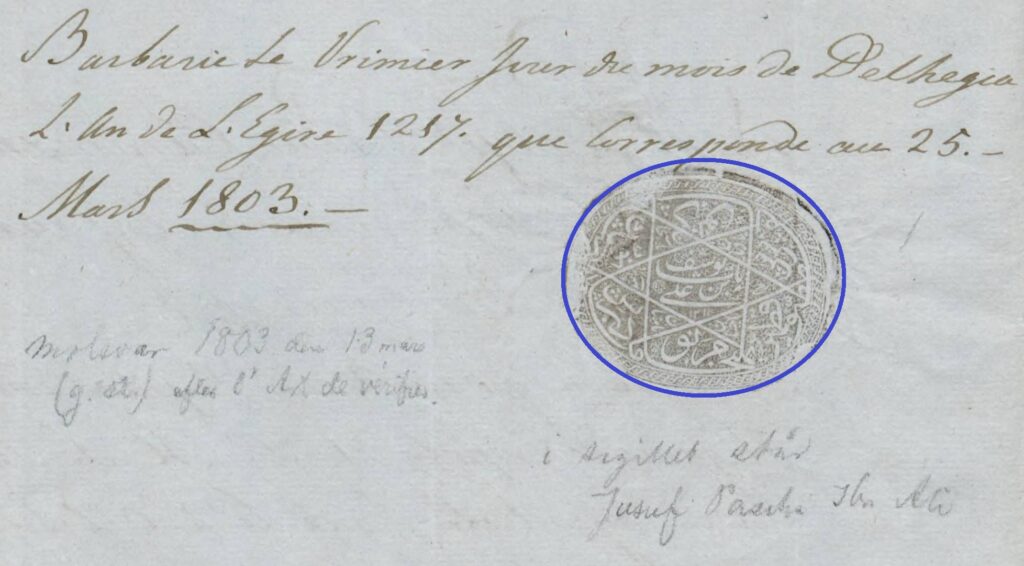 Barbarie le Primier jour du mois de Delhegia
L'An de L'Egire 1217. que Corresponde au 25.-
Mars 1803.-
motsvar 1803 den 13 mars
(g. st.) efter l'Art de vérifier.
i sigillet står
Jusuf Pascha Ibn Ali